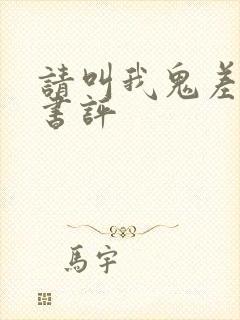 請叫我鬼差
書評
馬宇